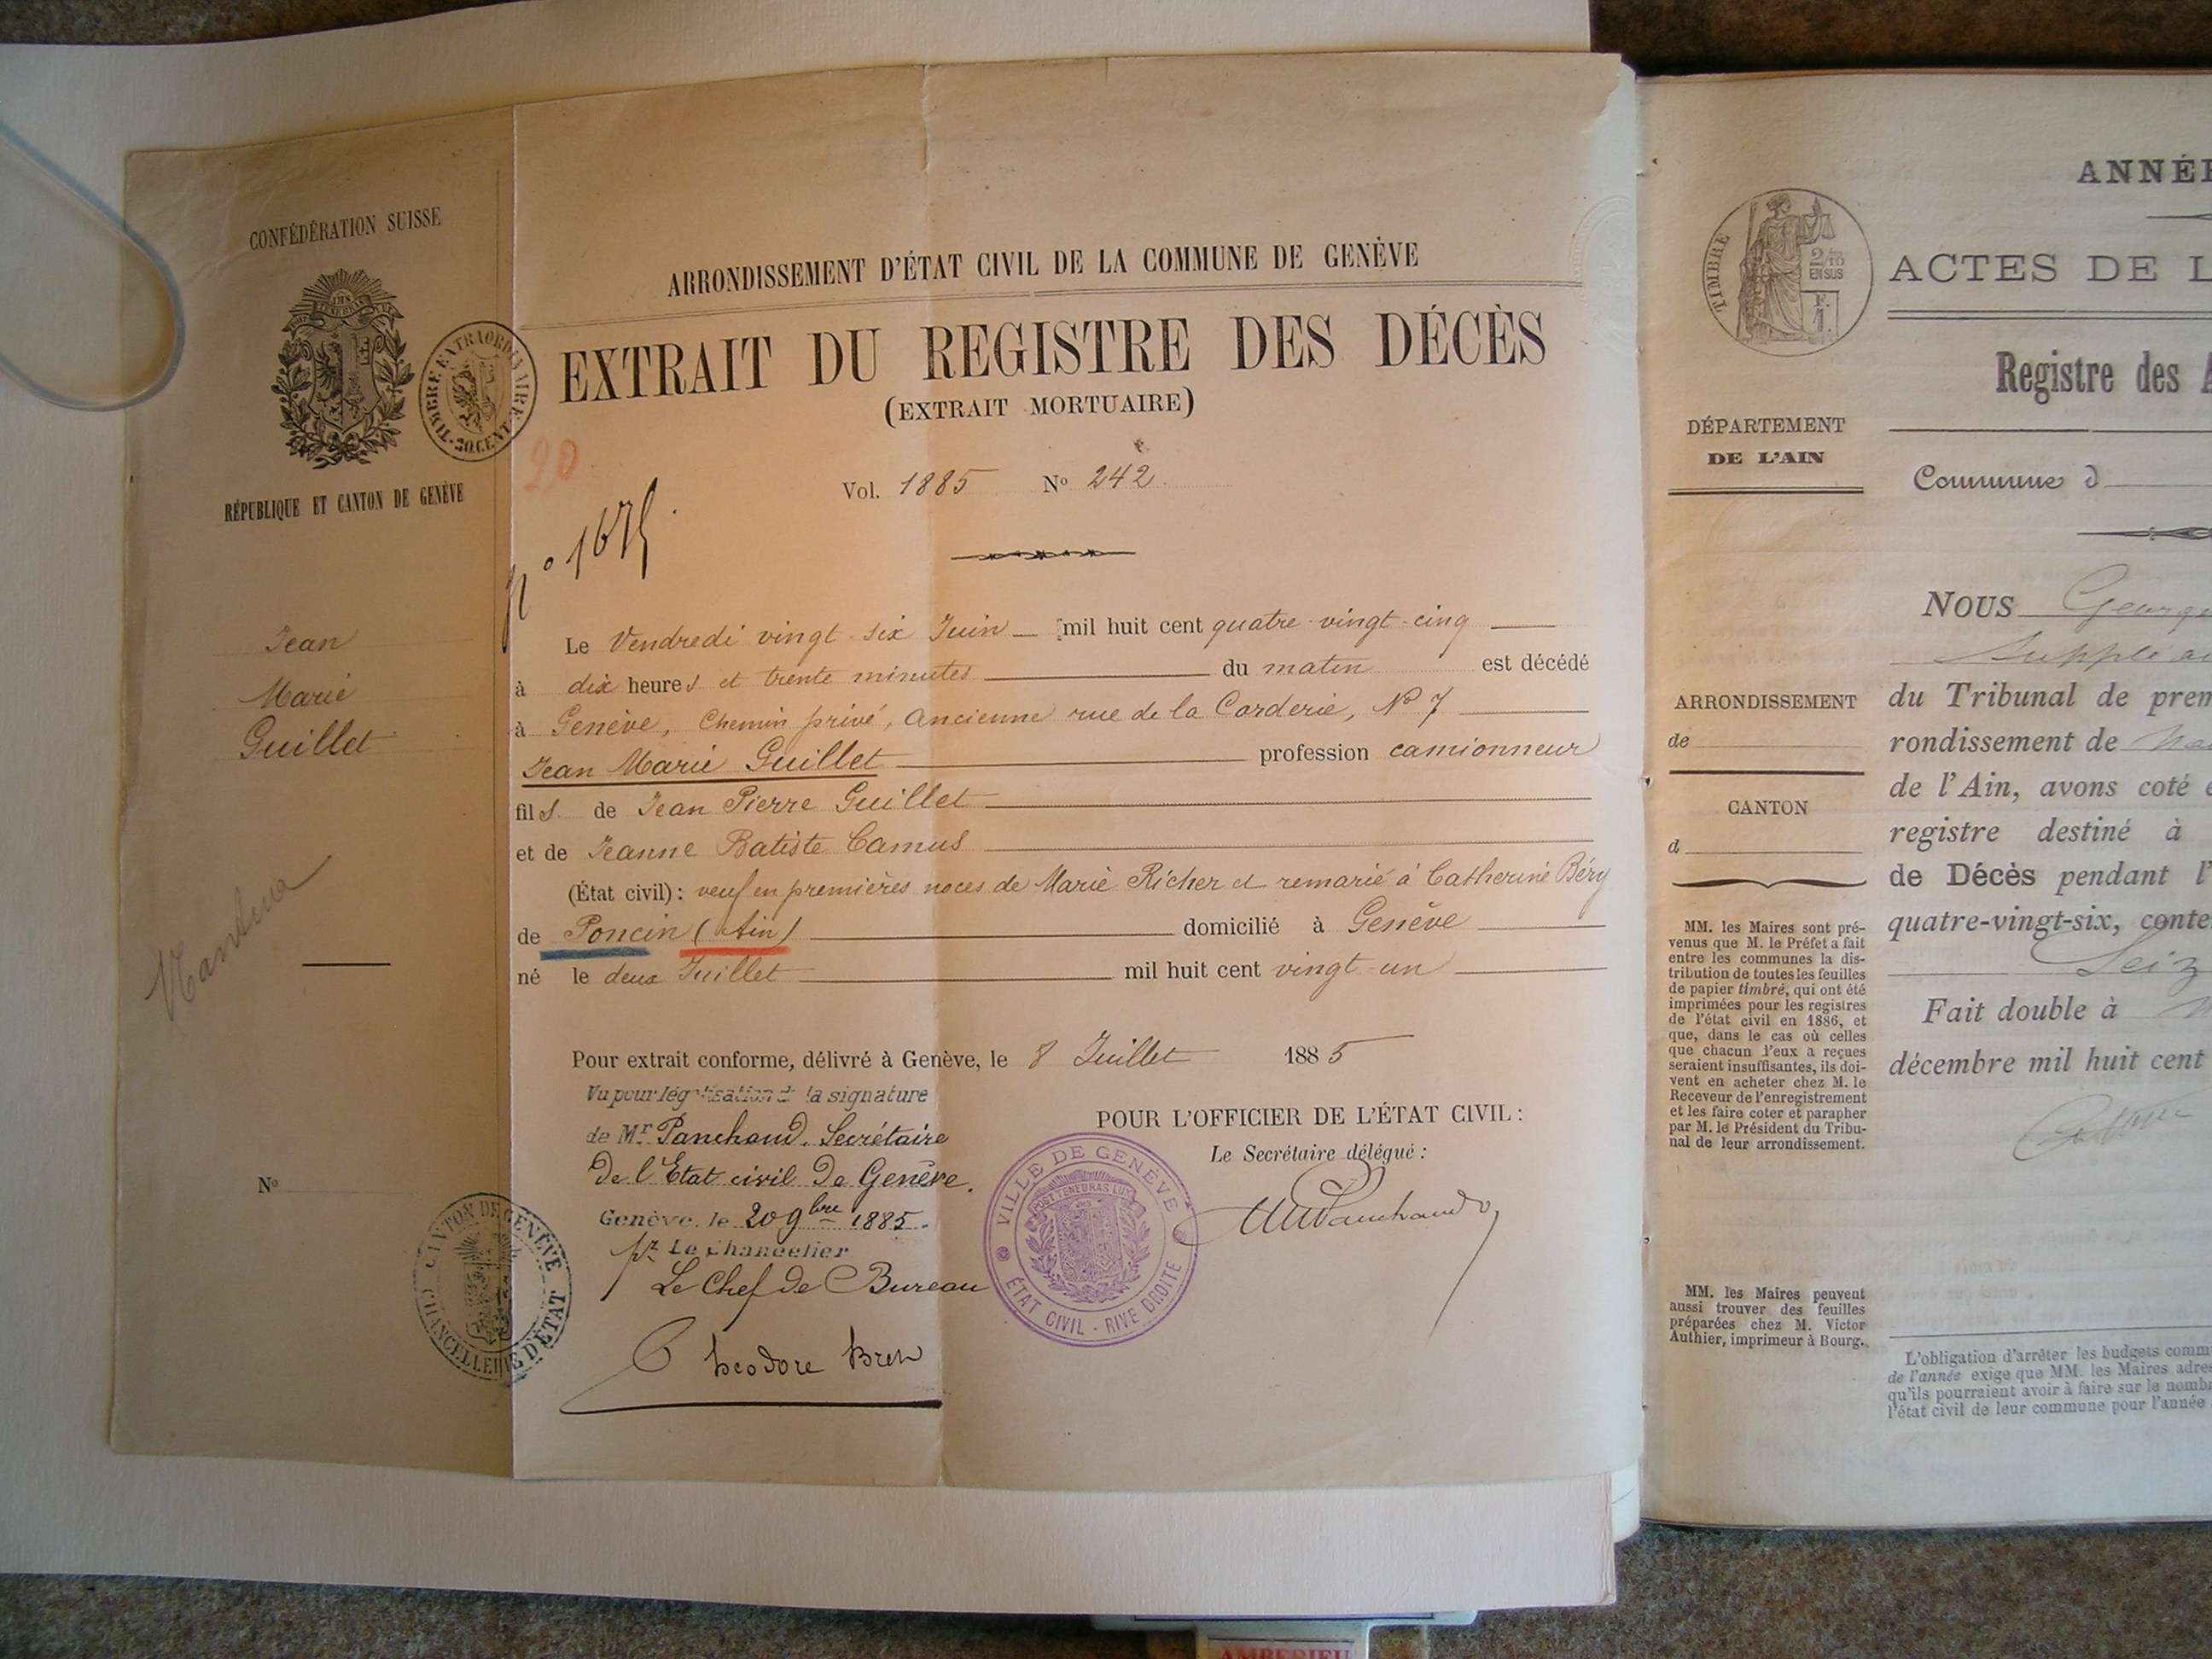 CONFÉDÉRATION SUISSE
POST TENEBRAS LUX
TIMBRE EXTRAORDINAIRE
30 CENT.
RÉPUBLIQUE ET CANTON DE GENÈVE
Jean
Marie
Guillet
Nantua
No
CANTON DE GENÈVE
CHANCELLERIE D'ÉTAT
ARRONDISSEMENT D'ÉTAT CIVIL DE LA COMMUNE DE GENÈVE
EXTRAIT DU REGISTRE DES DÉCÈS
(EXTRAIT MORTUAIRE)
20
Vol. 1885 No 242
no 1675.
Le Vendredi vingt-six Juin mil huit cent quatre-vingt-cinq
à dix heures et trente minutes du matin est décédé
à Genève, Chemin privé, ancienne rue de la Corderie, No 7
Jean Marie Guillet profession camionneur
fils de Jean Pierre Guillet
et de Jeanne Batiste Camus
(État civil): veuf en premières noces de Marie Richer et remarié à Catherine Béry
de Poncin (Ain) domicilié à Genève
né le deux Juillet mil huit cent vingt-un
Pour extrait conforme, délivré à Genève, le 8 Juillet 1885
Vu pour légalisation de la signature
de Mr Panchaud, Secrétaire
de l'Etat civil de Genève.
Genève, le 20 9bre 1885.
pr Le Chancelier
Le Chef de Bureau
Theodore Bret
POUR L'OFFICIER DE L'ÉTAT CIVIL:
Le Secrétaire délégué:
Panchaud
VILLE DE GENÈVE
POST TENEBRAS LUX
ÉTAT CIVIL - RIVE DROITE
ANNÉE
TIMBRE
2/10
EN SUS
F.
1.
ACTES DE L
Registre des A
DÉPARTEMENT
DE L'AIN
Commune d
NOUS George
Supplé
ARRONDISSEMENT
de
CANTON
d
du Tribunal de prem
rondissement de
de l'Ain, avons coté e
registre destiné à
de Décès pendant l'
quatre-vingt-six, conte
Seiz
Fait double à
décembre mil huit cent
MM. les Maires sont pré-
venus que M. le Préfet a fait
entre les communes la dis-
tribution de toutes les feuilles
de papier timbré, qui ont été
imprimées pour les registres
de l'état civil en 1886, et
que, dans le cas où celles
que chacun d'eux a reçues
seraient insuffisantes, ils doi-
vent en acheter chez M. le
Receveur de l'enregistrement
et les faire coter et parapher
par M. le Président du Tribu-
nal de leur arrondissement.
MM. les Maires peuvent
aussi trouver des feuilles
préparées chez M. Victor
Authier, imprimeur à Bourg.
L'obligation d'arrêter les budgets comm
de l'année exige que MM. les Maires adres
qu'ils pourraient avoir à faire sur le nomb
l'état civil de leur commune pour l'année
AMBERIEU